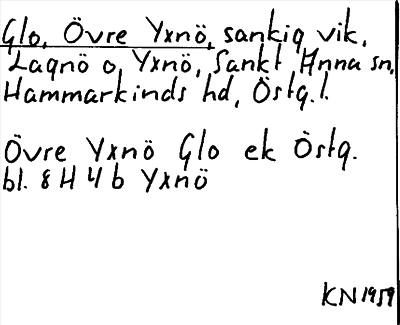 Glo, Övre Yxnö, sankig vik,
Lagnö o, Yxnö, Sankt Anna sn,
Hammarkinds hd, Östg.l.
Övre Yxnö Glo ek Östg.
bl. 8 H 4 b Yxnö
KN 1959